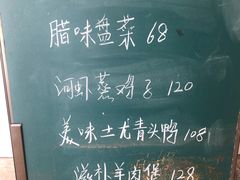 腊味盘菜 68
河虾蒸鸡子 120
美味土尤青头鸭 108
滋补羊肉煲 128